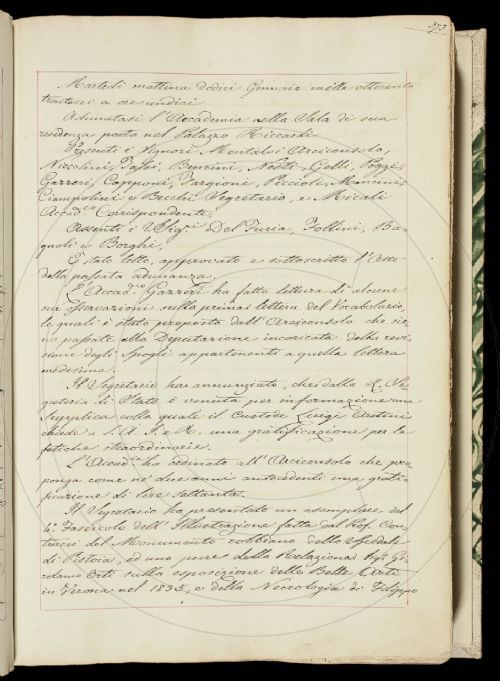 373
Martedì mattina dodici Gennaio mille ottocento
trentasei a ore undici
Adunatasi l'Accademia nella Sala di sua
residenza posta nel Palazzo Riccardi
Presenti i Signori Montalvi Arciconsolo,
Niccolini, Bencini, Nesti, Gelli, Poggi,
Gazzeri, Capponi, Targioni, Piccioli, Mancini,
Ciampolini e Becchi Segretario, e Micali
Accad.co Corrispondente,
Assenti i Sig.ri Del Furia, Follini, Ba-
gnoli e Borghi,
È stato letto, approvato e sottoscritto l'Atto
della passata adunanza.
L'Accad.co Gazzeri ha fatto lettura di alcune
sue osservazioni sulla prima lettera del Vocabolario,
le quali è stato proposto dall'Arciconsolo che sie-
no passate alla Deputazione incaricata della revi-
sione degli spogli appartenenti a quella lettera
medesima.
Il Segretario ha annunziato, che dalla R. Se-
greteria di Stato è venuta per informazione una
supplica colla quale il Custode Luigi
chiede a S. A. I. e R. una gratificazione per le
fatiche straordinarie.
L'Accad. ha ordinato all'Arciconsolo che pro-
ponga come ne' due anni antecedenti una grati-
ficazione di lire settanta.
Il Segretario ha presentato un esemplare del
4.° Fascicolo dell'Illustrazione fatta dal Prof. Con-
trucci del Monumento robbiano dello Spedale
di Pistoia, ed uno pure della Relazione Gi-
rolamo Orti sulla esposizione delle Belle Arti
in Verona nel 1835, e della Necrologia di Filippo